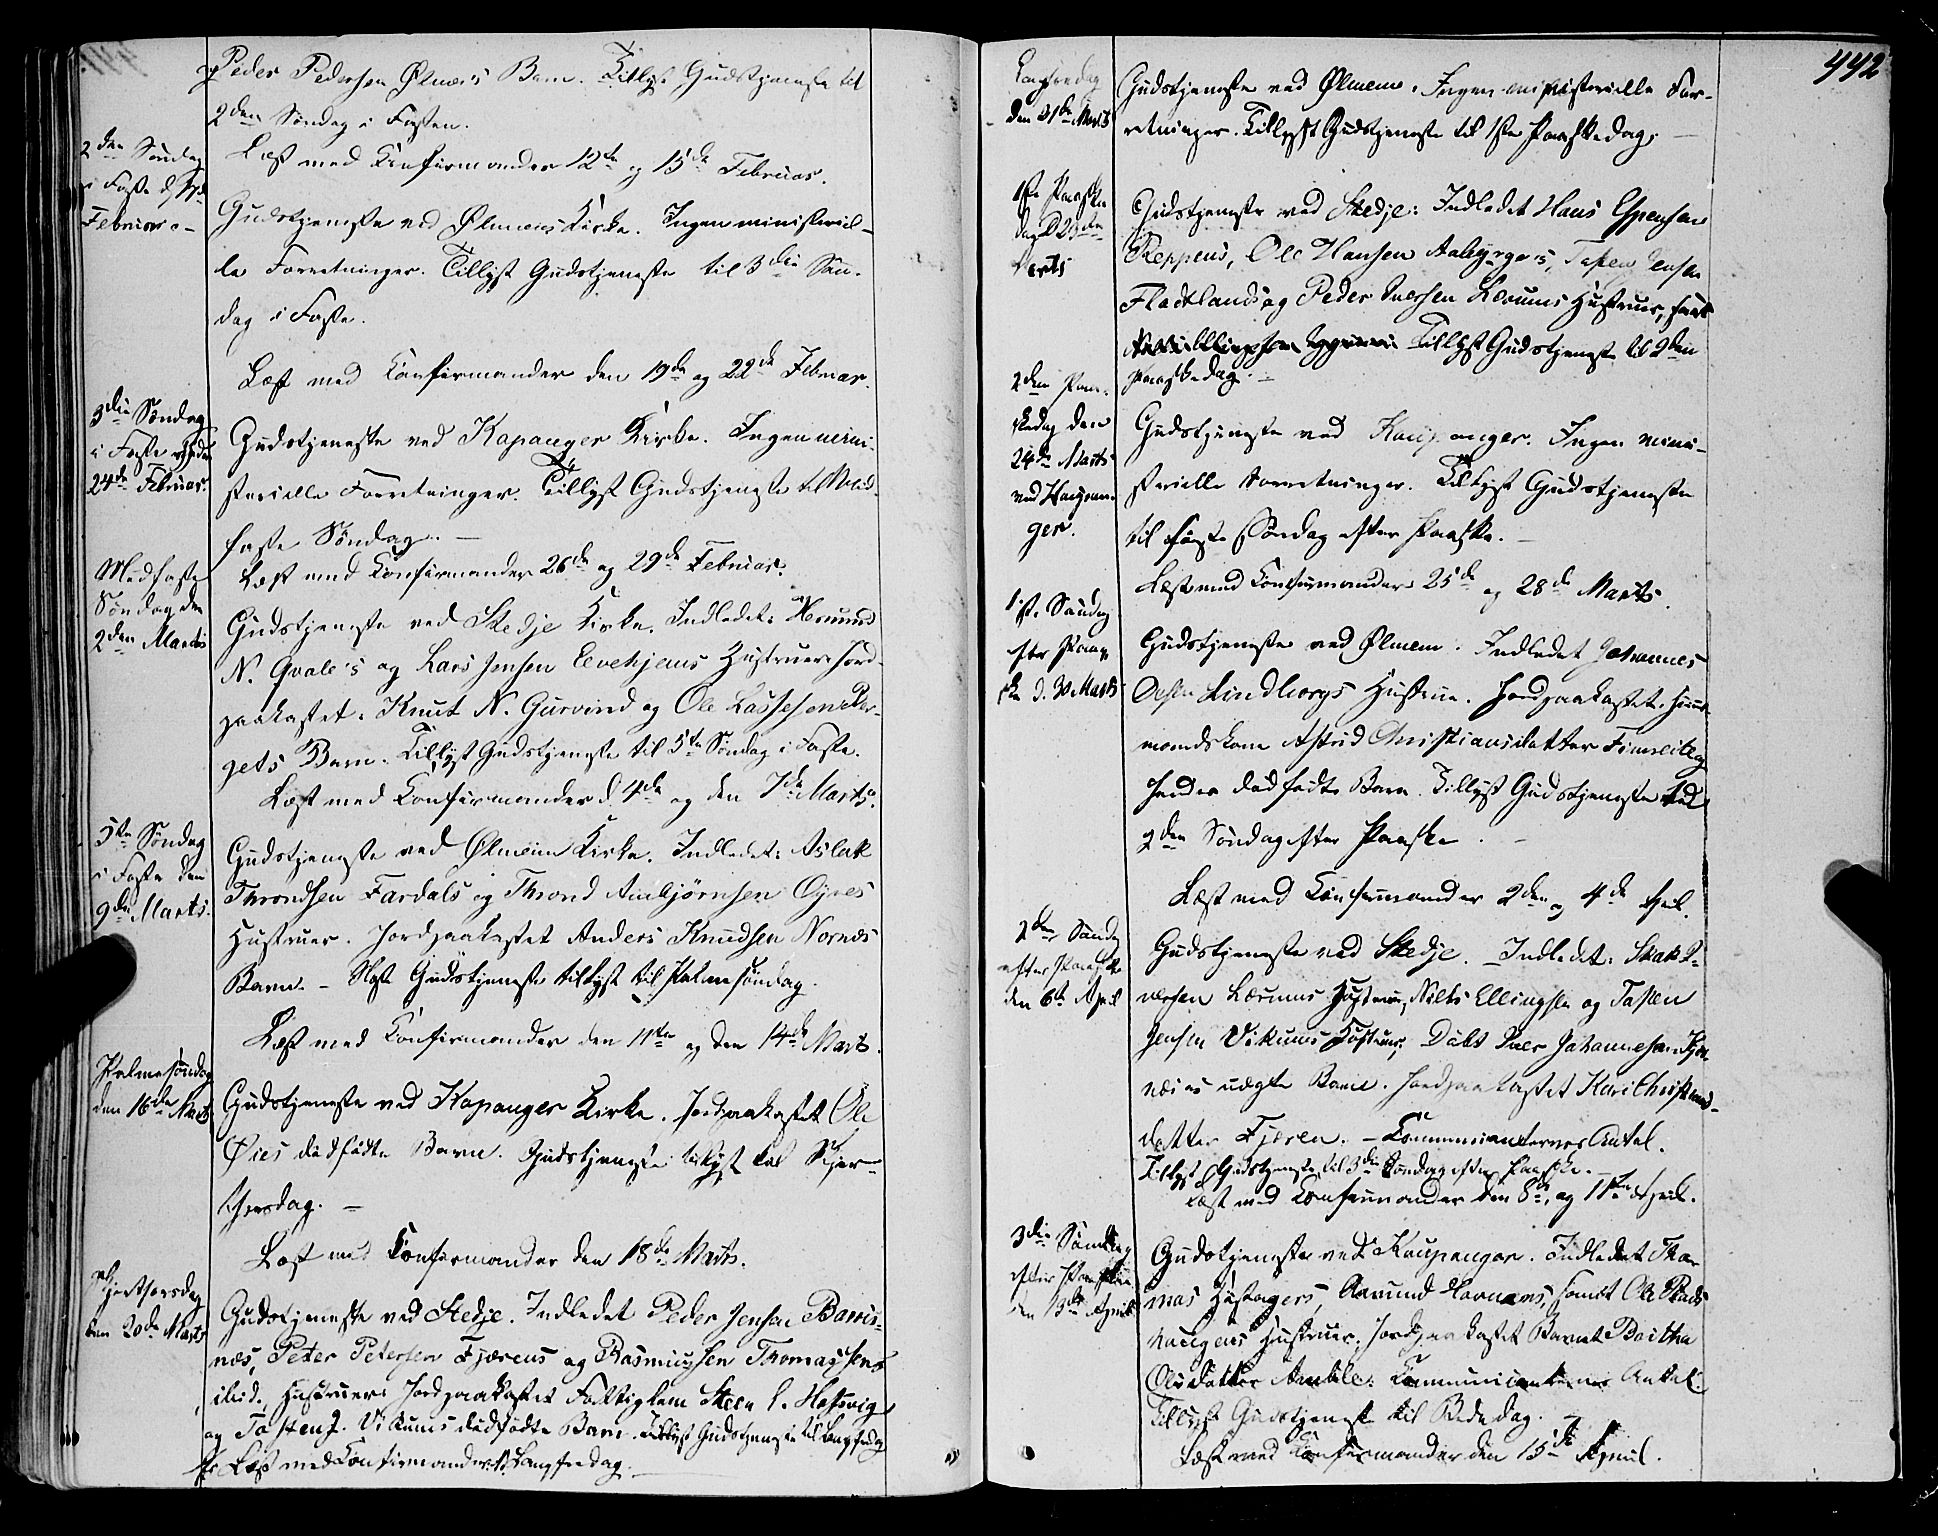 Peder Pedersen Ølmeis Barn. Tillyst Gudstjeneste til
2den Søndag i Fasten.
2den Søndag
i Faste d. 17de
Februar
Læst med Konfirmander 12te og 15de Februar.
Gudstjeneste ved Ølmeim Kirke. Ingen ministeriel-
le Forretninger. Tillyst Gudstjeneste til 3die Søn-
dag i Faste.
Læst med Konfirmander den 19de og 22de Februar.
3die Søndag
i Faste
24de Februar.
Gudstjeneste ved Kapanger Kirke. Ingen mini-
sterielle Forretninger. Tillyst Gudstjeneste til Mid-
faste Søndag. —
Læst med Konfirmander 26de og 29de Februar.
Midfaste
Søndag den
2den Marts
Gudstjeneste ved Stedje Kirke. Indledet: Hermund
N. Qvale's og Lars Jensen Eevehjems Hustruer. Jord-
paakastet: Knut N. Gurvind og Ole Lassesen Ber-
gets Barn. Tillyst Gudstjeneste til 5te Søndag i Faste.
Læst med Konfirmander d. 4de og den 7de Marts.
5te Søndag
i Faste den
9de Marts.
Gudstjeneste ved Ølmeim Kirke. Indledet: Aslak
Throndsen Fardals og Thrond Anbjørnsen Øjres
Hustruer. Jordpaakastet Anders Knudsen Nornæs
Barn. — Næste Gudstjeneste tillyst til Palmesøndag.
Læst med Konfirmander den 11te og den 14de Marts.
Palmesøndag
den 16de Marts
Gudstjeneste ved Kapanger Kirke. Jordpaakastet Ole
Øies dødfødte Barn. Gudstjeneste tillyst til Skjær-
thorsdag. —
Læst med Konfirmander den 18de Marts.
Skjærthorsdag
den 20de Marts
Gudstjeneste ved Stedje. Indledet Peder Jensen Barss-
næs, Peter Petersen Fjærens og Rasmus Thomassens
ibid. Hustruer. Jordpaakastet Fattiglem Steen
og Tosten J. Vikums dødfødte Barn. Tillyst Gudstjeneste til Langfredag
Læst med Konfirmander Langfredag.
442
Langfredag
den 21de Marts
Gudstjeneste ved Ølmem. Ingen ministerielle For-
retninger. Tillyst Gudstjeneste til 1ste Paaskedag. —
1ste Paaske
dag d. 23de
Marts
Gudstjeneste ved Stedje: Indledet Hans Espensen
Reppens, Ole Hansen Aabergs, Tosten Jensen
Fladtlands og Peder Iversen Lærums Hustruer,
Tillyst Gudstjeneste til 2den
Paaskedag. —
2den Paa-
skedag den
24de Marts
ved Kaupan-
ger.
Gudstjeneste ved Kaupanger. Ingen mini-
sterielle Forretninger. Tillyst Gudstjeneste
til første Søndag efter Paaske. —
Læst med Konfirmander 25de og 28de Marts.
1ste Søndag
efter Paas-
ke d. 30 Marts
Gudstjeneste ved Ølmem. Indledet Johannes
Olsen Lindborgs Hustrue. Jordpaakastet: Huus-
mandskone Astrid Christiansdatter Fimreiteg
hendes dødfødte Barn. Tillyst Gudstjeneste til
2den Søndag efter Paaske. —
Læst med Konfirmander 2den og 4de April.
2den Søndag
efter Paaske
den 6te April
Gudstjeneste ved Stedje. — Indledet: Skak I-
versen Lærums Hustrue, Niels Ellingsen og Tosten
Jensen Vikums Hustruer. Døbt Iver Johannesen
uægte Barn. Jordpaakastet Kari Christens-
datter Fjæren. — Communicanternes Antal.
Tillyst Gudstjeneste til 3die Søndag efter Paaske. —
Læst med Konfirmander den 8de og 11te April.
3die Søndag
efter Paaske
den 13de April
Gudstjeneste ved Kaupanger. Indledet Tho-
mas Hustagers, Amund Havnens, samt Ole
haugens Hustruer. Jordpaakastet Barnet Britha
Olsdatter Amble. Communicanternes Antal.
Tillyst Gudstjeneste til Bededag. —
Læst med Konfirmander den 15de April.